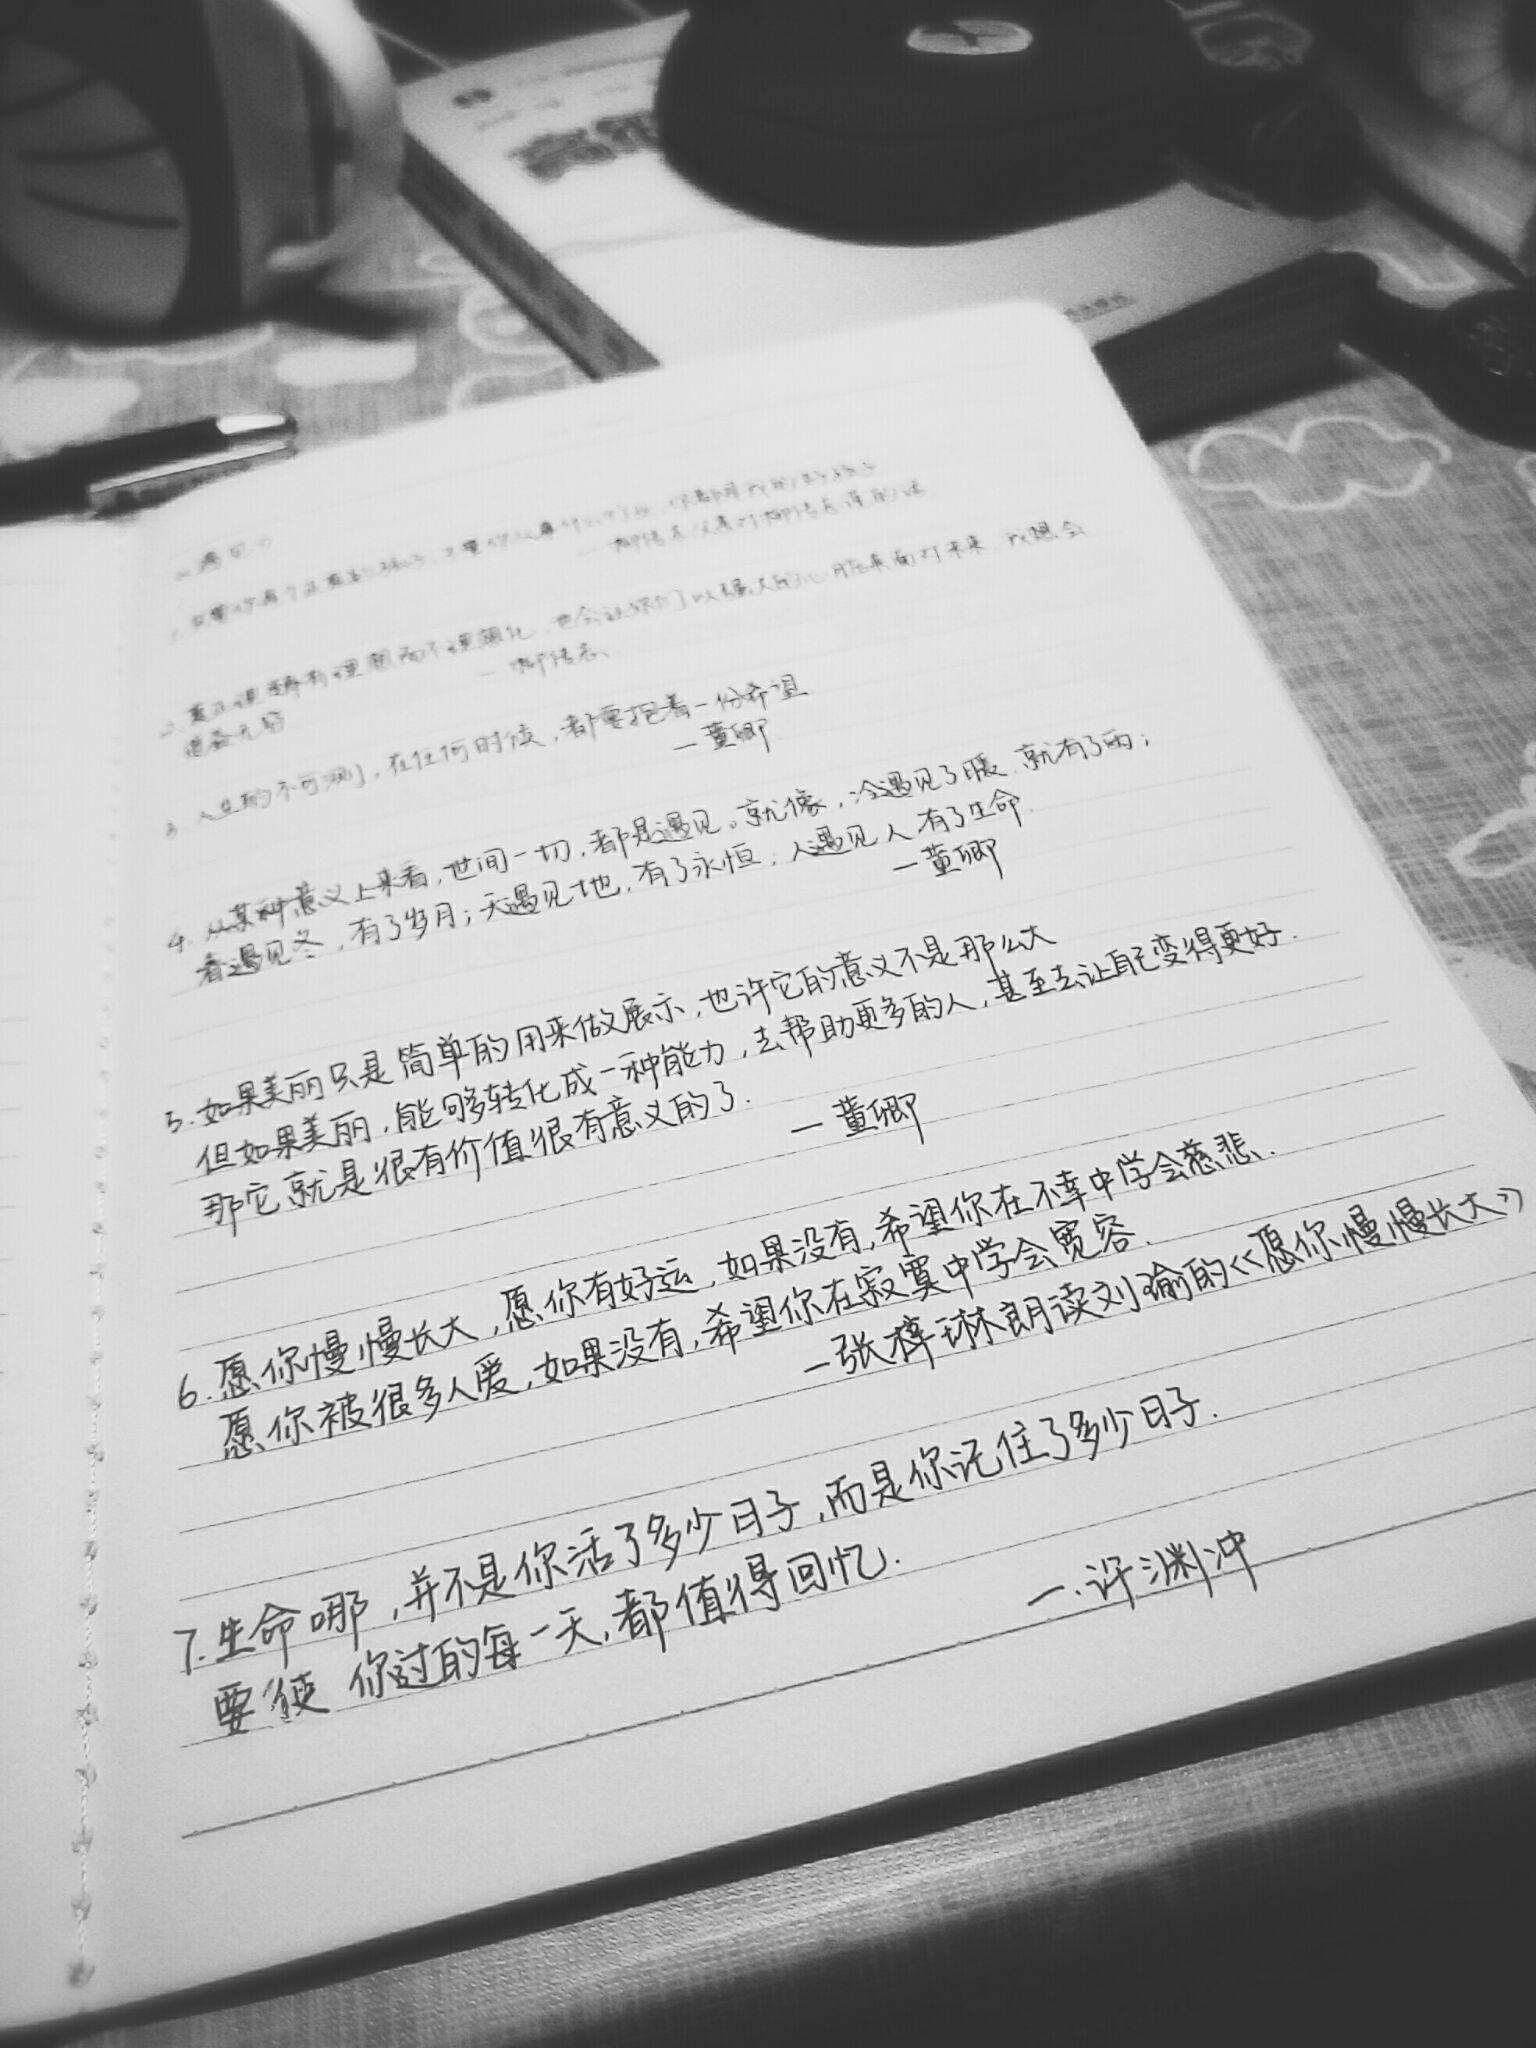 遇见
1. 只要你是个正直的孩子,不管你从事什么行业,你都是我的好孩子
— 柳传志父亲对柳传志说的话
有理想而不理想化,也会让你们以强大的心脏来面对未来,我想会
— 柳传志
3 人生的不可测,在任何时候,都要抱着一份希望
— 董卿
4. 从某种意义上来看,世间一切,都是遇见。就像,冷遇见了暖,就有了雨;
春遇见冬,有了岁月;天遇见地,有了永恒;人遇见人有了生命.
— 董卿
5. 如果美丽只是简单的用来做展示,也许它的意义不是那么大
但如果美丽,能够转化成一种能力,去帮助更多的人,甚至去让自己变得更好.
那它就是很有价值很有意义的了.
— 董卿
6. 愿你慢慢长大,愿你有好运,如果没有,希望你在不幸中学会慈悲.
愿你被很多人爱,如果没有,希望你在寂寞中学会宽容.
— 张梓琳朗读刘瑜的《愿你慢慢长大》
7. 生命哪,并不是你活了多少日子,而是你记住了多少日子.
要使你过的每一天,都值得回忆.
— 许渊冲